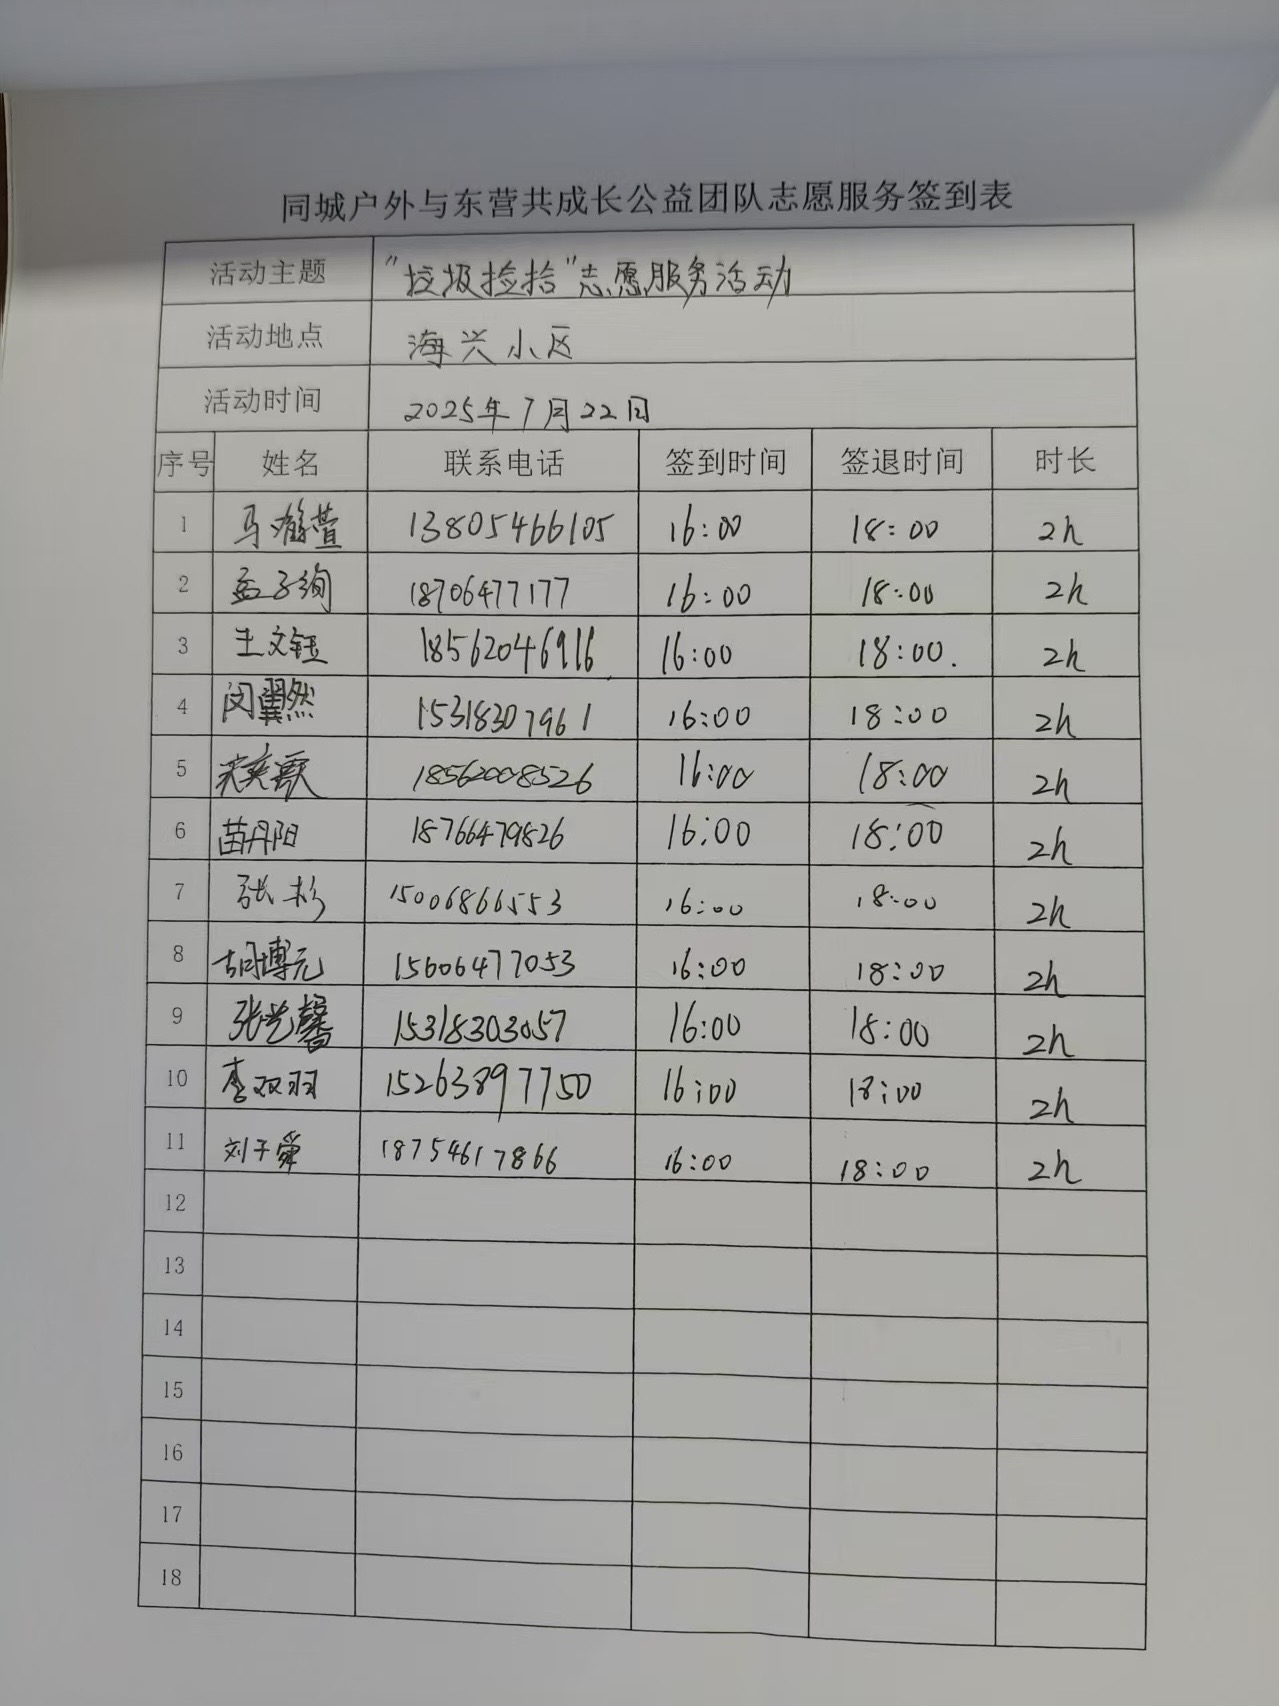 同城户外与东营共成长公益团队志愿服务签到表
活动主题 "垃圾捡拾"志愿服务活动
活动地点 海兴小区
活动时间 2025年7月22日
序号 姓名 联系电话 签到时间 签退时间 时长
1 马 萱 13805466105 16:00 18:00 2h
2 孟子绚 18706477177 16:00 18:00 2h
3 王文钰 18562046916 16:00 18:00. 2h
4 闵翼然 15318307961 16:00 18:00 2h
5 奕歌 18562008526 16:00 18:00 2h
6 苗丹阳 18766479826 16:00 18:00 2h
7 张杉 15006866553 16:00 18:00 2h
8 胡博元 15606477053 16:00 18:00 2h
9 张艺馨 15318303057 16:00 18:00 2h
10 李双羽 15263897750 16:00 18:00 2h
11 刘子舜 18754617866 16:00 18:00 2h
12
13
14
15
16
17
18